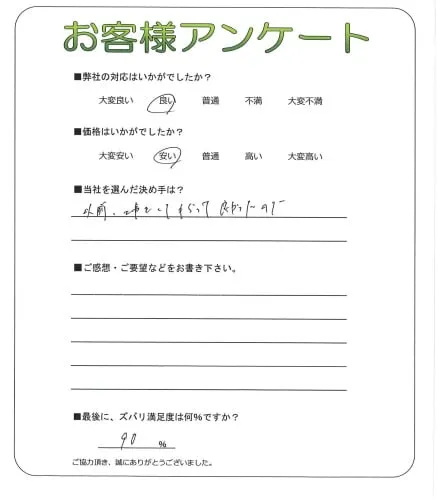 お客様アンケート
■弊社の対応はいかがでしたか？
大変良い 良い 普通 不満 大変不満
■価格はいかがでしたか？
大変安い 安い 普通 高い 大変高い
■当社を選んだ決め手は？
以前、 してもらって良かったので
■ご感想・ご要望などをお書き下さい。
■最後に、ズバリ満足度は何%ですか？
90 %
ご協力頂き、誠にありがとうございました。